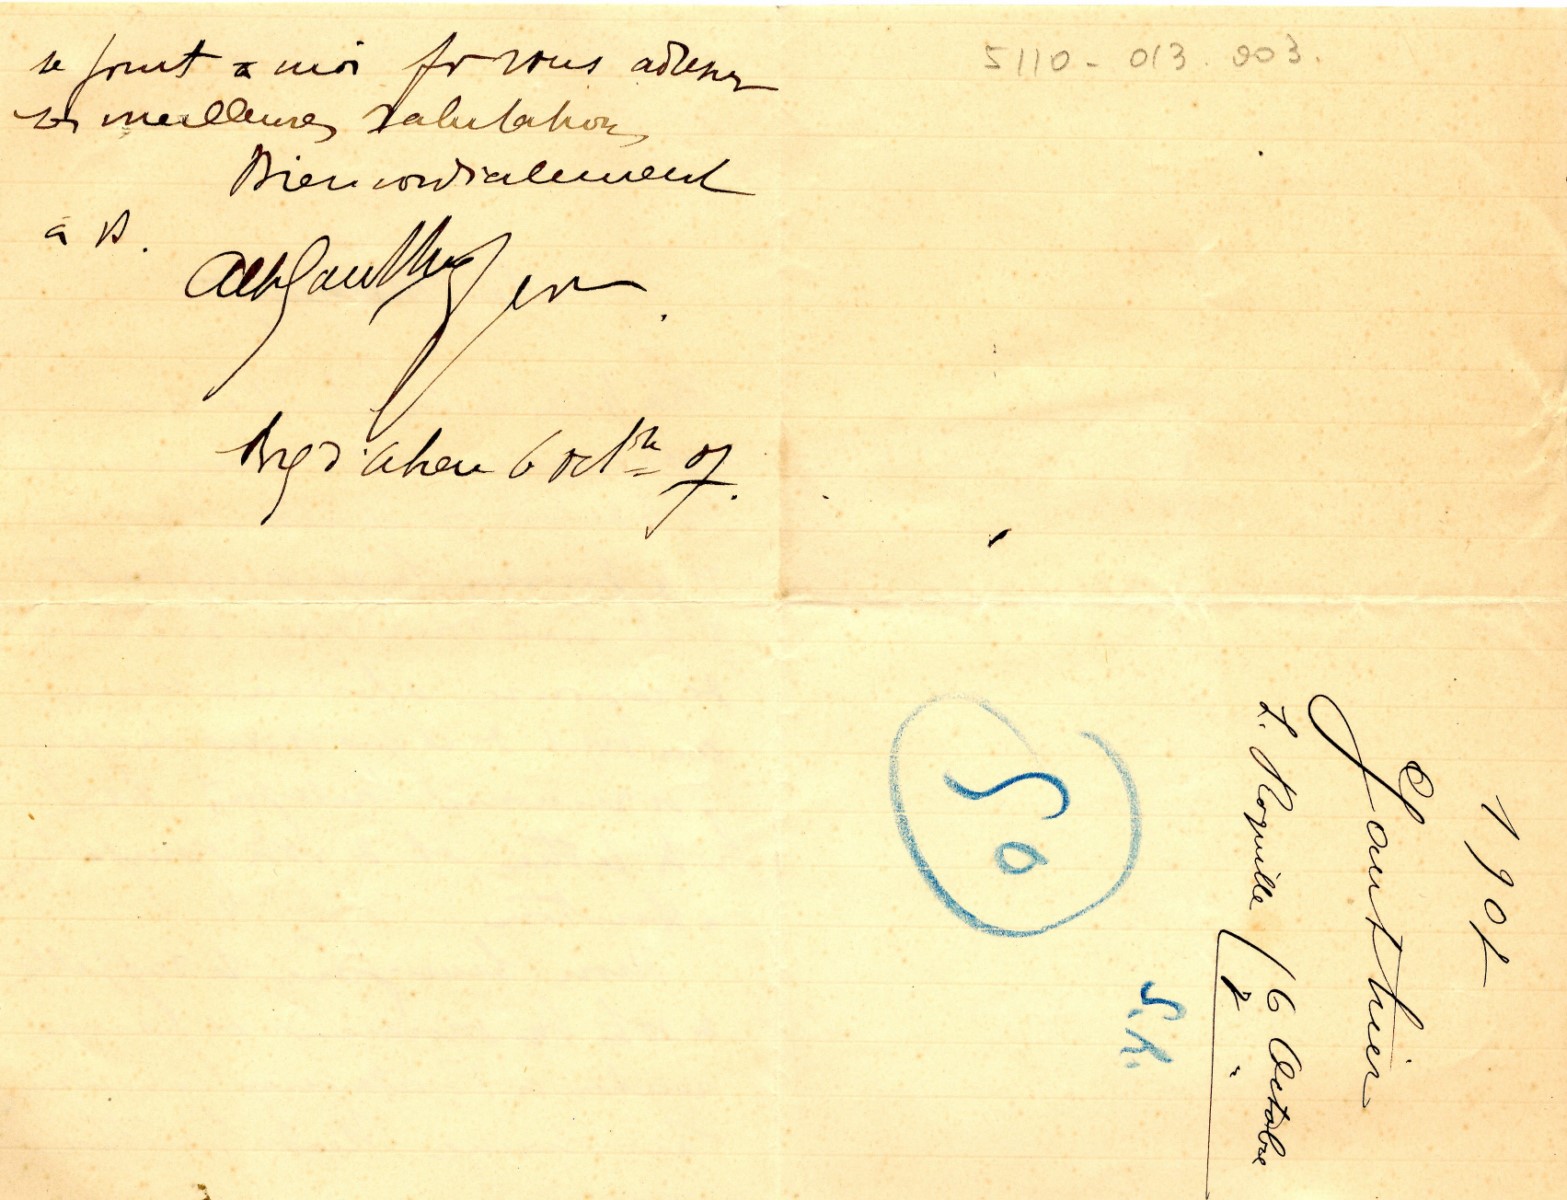 se joint a moi pr vous adresser
ses meilleures salutations
Bien cordialement
à V.
Alb Gauthier
6 octbre 07.
5110-013.203.
1907
Gauthier
L. Roquille / 6 Octobre
7 "
50
S.R.